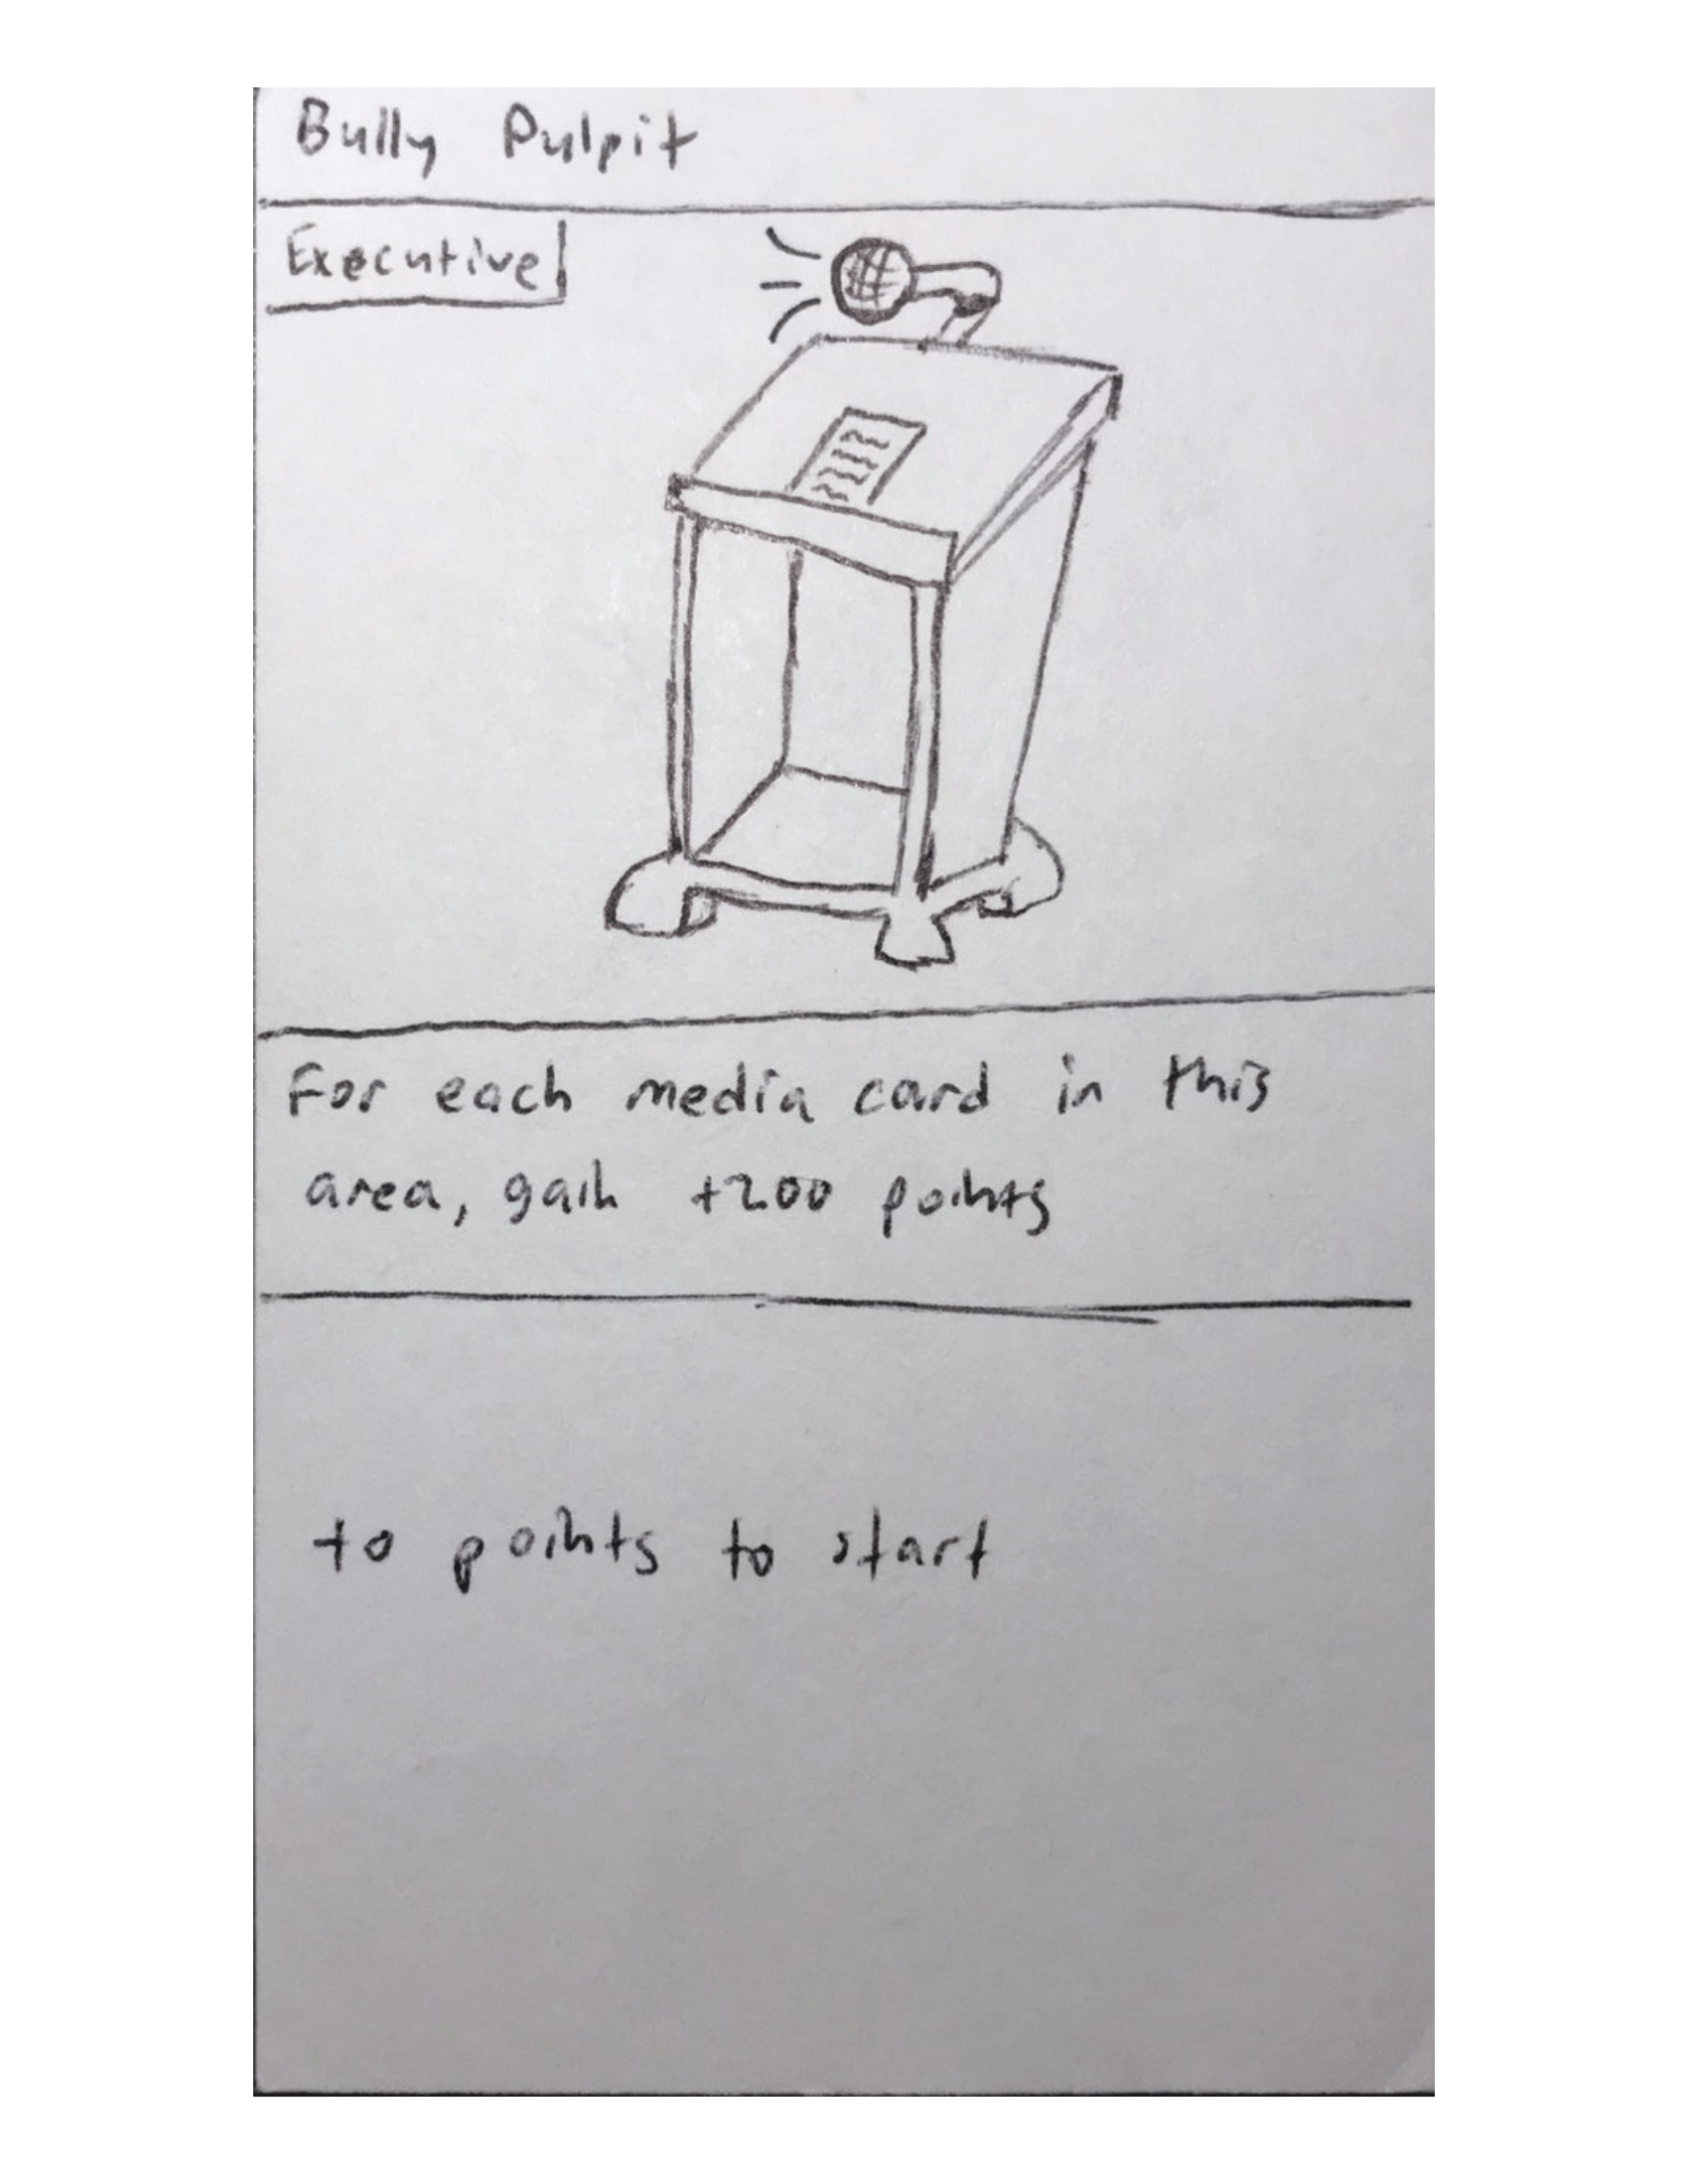 Bully Pulpit
Executive
For each media card in this
area, gain +200 points
+0 points to start